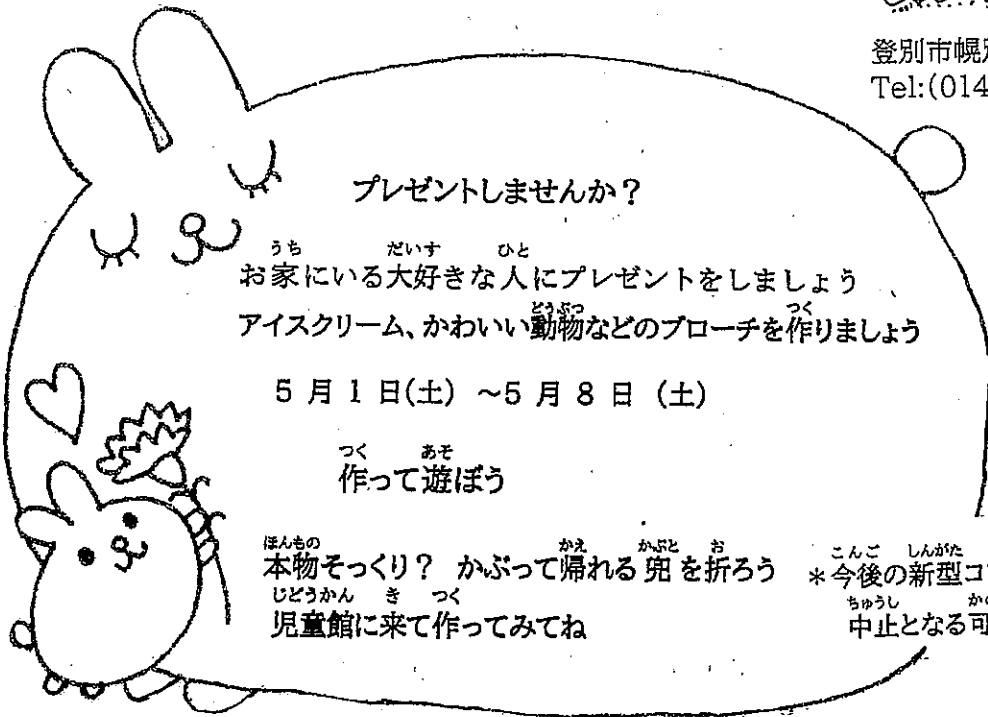 登別市幌別
Tel:(014
プレゼントしませんか？
お家にいる大好きな人にプレゼントをしましょう
アイスクリーム、かわいい動物などのブローチを作りましょう
5月1日(土) ～5月8日 (土)
作って遊ぼう
本物そっくり？ かぶって帰れる兜を折ろう
児童館に来て作ってみてね
＊今後の新型コ
中止となる可